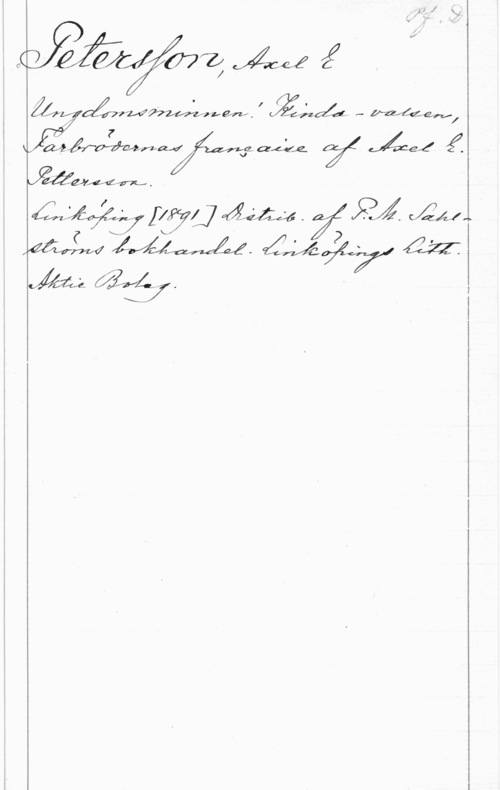 Pf. D.
Petersson, Axel E
Ungdomsminnen! Kinda-valsen,
Farbrödernas française af Axel E.
Pettersson.
Linköping [1891] Distrib. af P. M. Sahl-
ströms bokhandel. Linköpings Lith.
Aktie Bolag.